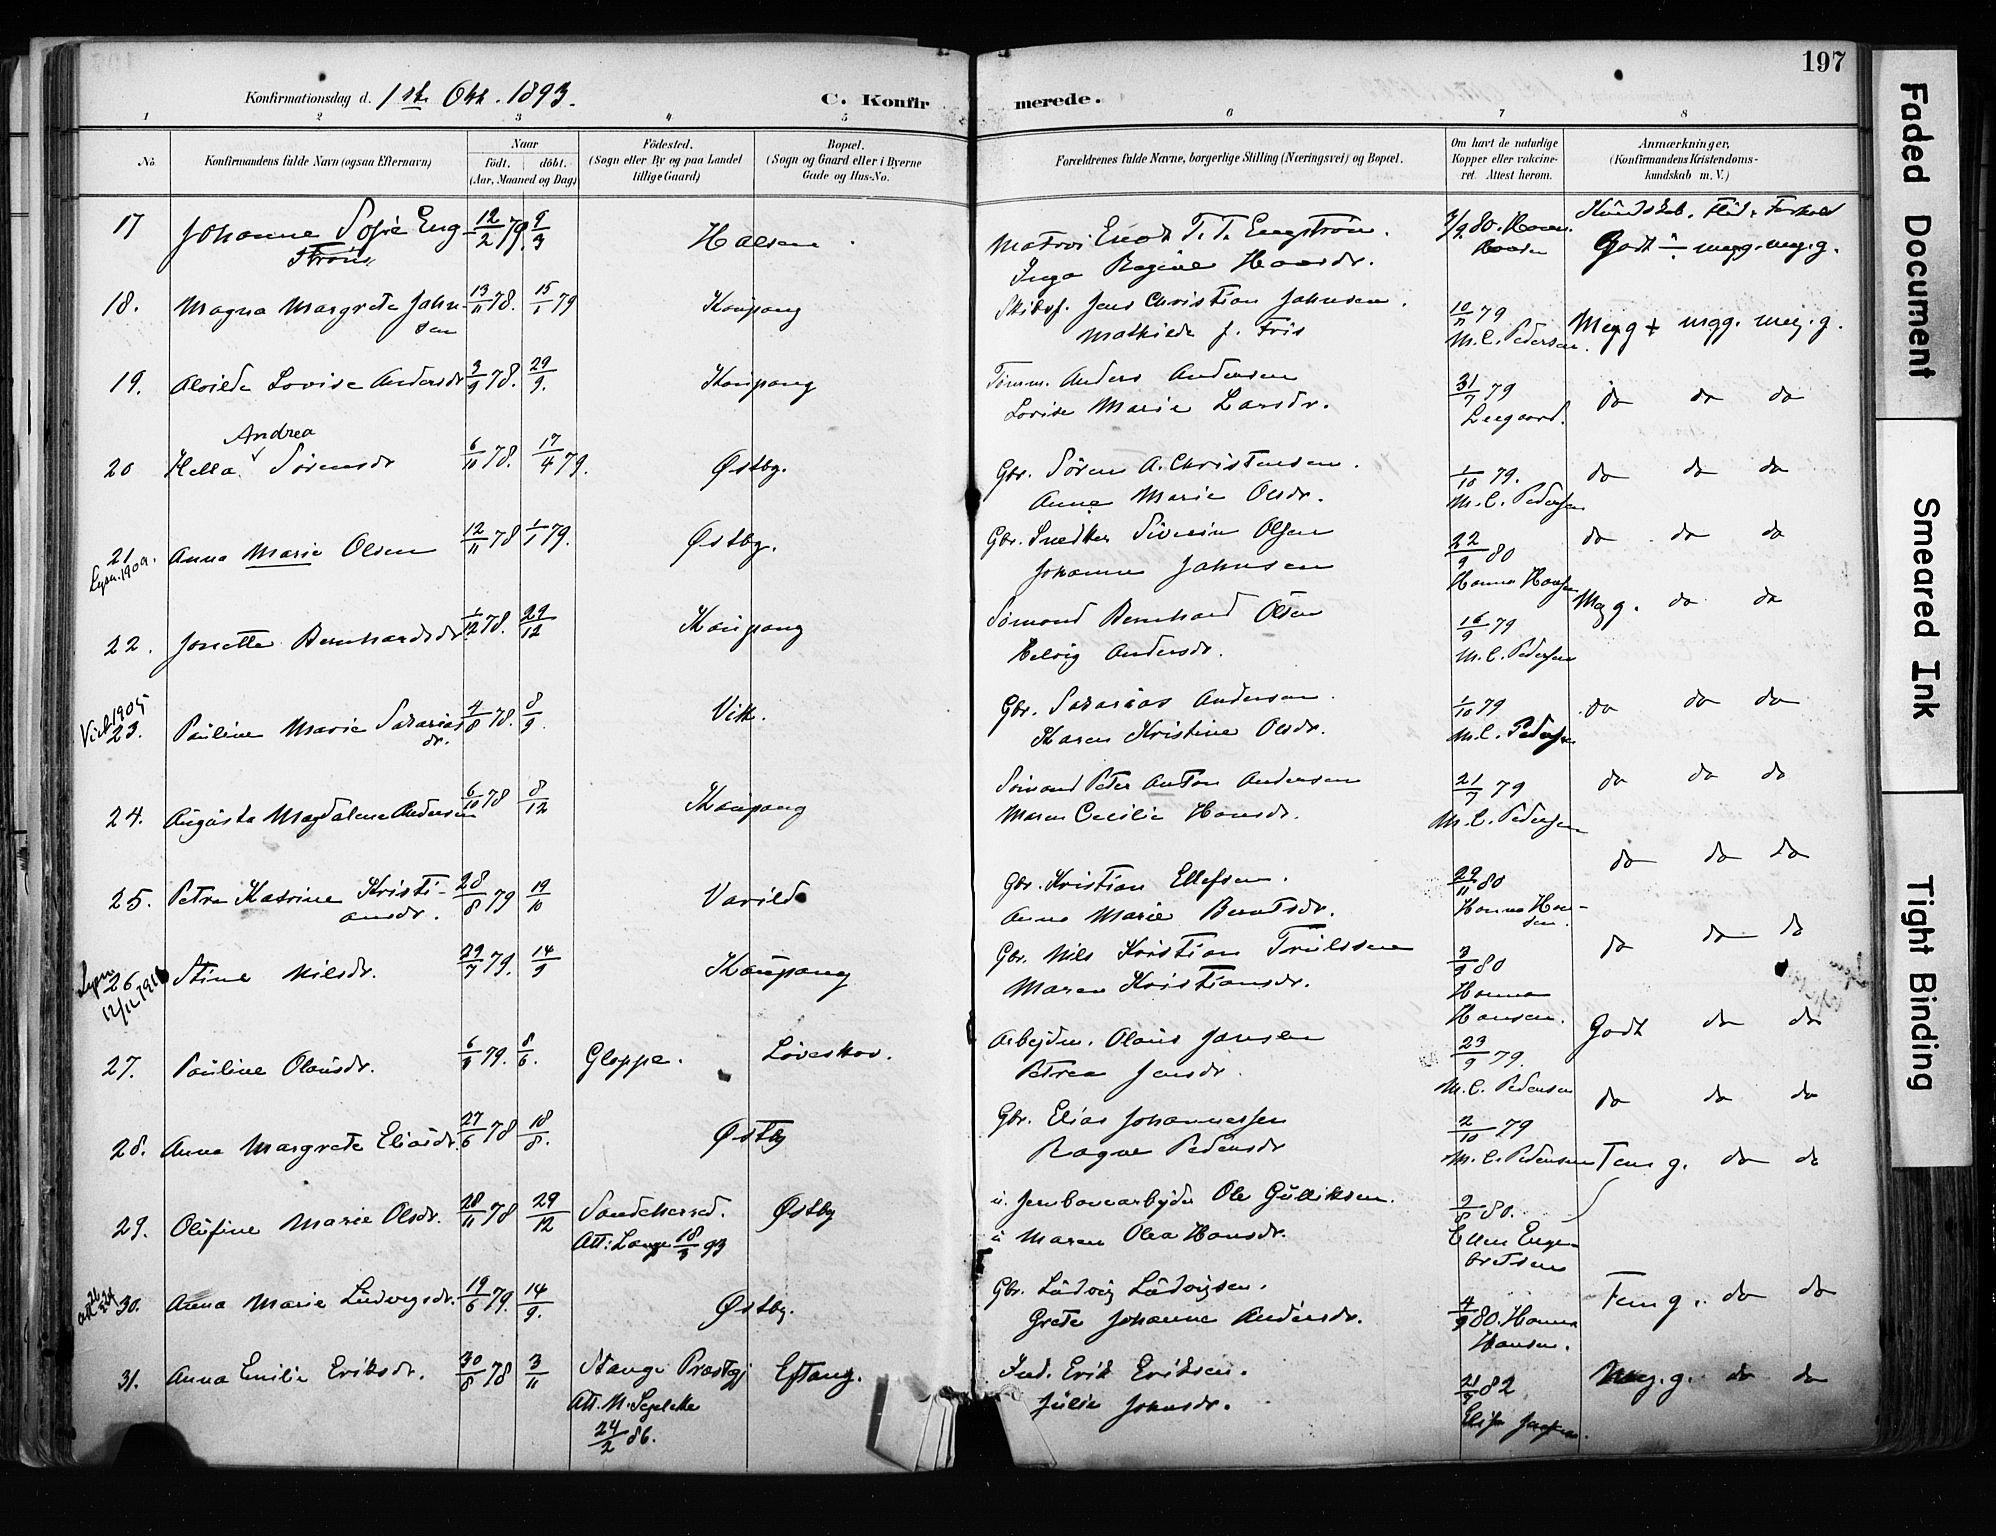 197
Konfirmationsdag d. 1ste Okt. 1893.
C. Konfirmerede.
1 2 3 4 5 6 7 8
No
Konfirmandens fulde Navn (ogsaa Efternavn)
Naar
født. døbt.
(Aar, Maaned og Dag)
Fødested.
(Sogn eller By og paa Landet
tillige Gaard)
Bopæl.
(Sogn og Gaard eller i Byerne
Gade og Hus-No.
Forældrenes fulde Navne, borgerlige Stilling (Næringsvei) og Bopæl.
Om havt de naturlige
Kopper eller vakcine-
ret. Attest herom.
Anmærkninger,
(Konfirmandens Kristendoms-
kundskab m. V.)
17 Johanne Sofie Eng- 12/2 79. 9/3 Halsen Matros Enok T. T. Engstrøm.
strøm Inga Regine
Kundskab. Flid. Forhold
Godt ÷ megg. meg. g.
18. Magna Margrete John- 13/11 78. 15/1 79 Kaupang Skibsf. Jens Christian Johnsen. 10/11 79
sen Mathilde f. Friis M. C. Pedersen. Meg g + mgg. meg. g.
19. Alvilde Lovise Andersdr 3/9 78. 29/9. Kaupang Tømm. Anders Andersen 31/7 79 do do do
Lovise Marie Larsdr. Leegaard.
Andrea
20 Hella Sørensdr 6/11 78. 17/4 79. Østby. Gbr. Søren A. Christensen. 1/10 79. do do do
Anne Marie Olsdr. M. C. Pedersen
21 Anna Marie Olsen 12/11 78 1/1 79. Østby. Gbr. Snedker Siverin Olsen 22/9 80 do do do
Lysn. 1902. Johanne Johnsen Hanna Hansen
22. Josette Bernhardsdr 1/12 78. 29/12 Kaupang Sømand Bernhard Olsen 16/9 79 Meg g. do do
Helvig Andersdr. M. C. Pedersen
1905
23. Pauline Marie Sakarias 4/8 78. 8/9. Vik. Gbr. Sakarias Andersen 1/10 79 do do do
dr. Karen Kristine Olsdr. M. C. Pedersen
24. Augusta Magdalene Andersen 6/10 78 8/12 Kaupang Sømand Peter Anton Andersen 21/7 79 do do do
Maren Cecilie Hansdr. M. C. Pedersen
25. Petra Katrine Kristi- 28/8 79 19/10 Varild Gbr. Kristian Ellefsen. 29/11 80 do do do
ansdr. Anne Marie Berntsdr. Hanna Han-
sen.
26 Stine Nilsdr. 29/7 79. 14/9 Kaupang Gbr. Nils Kristian Trulssen 3/9 80 do do do
Lysn
Maren Kristiansdr. Hanna
Hansen.
27. Pauline Olausdr. 6/3 79. 8/6. Gloppe. Løveskov. Arbejdm. Olaus Jansen 23/9 79. Godt do do
Petrea Jensdr. M. C. Pedersen
28. Anne Margrete Eliasdr. 27/6 78 18/8. Østby Gbr. Elias Johannessen 2/10 79 do do do
Ragne Pedersdr M. C. Pedersen
29. Olufine Marie Olsdr. 28/11 78 29/12 Sandeherred. Østby u. Jernbanearbejder Ole Gulliksen. 2/8 80. Tem g. do do
Att: Lange 18/3 93 u Maren Olea Hansdr. Ellen Enge-
bretsen
30. Anna Marie Ludvigsdr. 19/6 79. 14/9. Østby. Gbr. Ludvig Ludvigsen. 4/9 80. Hanna Tem g. do do
Grete Johanne Andersdr. Hansen.
31. Anna Emilie Eriksdr. 30/8 78 3/11 Stange Præstgj Eftang. Ind. Erik Eriksen. 21/9 82 Meg. g. do do
Att. M. Segelcke Julie Johnsdr.
24/2 86.
Faded Document
Smeared Ink
Tight Binding